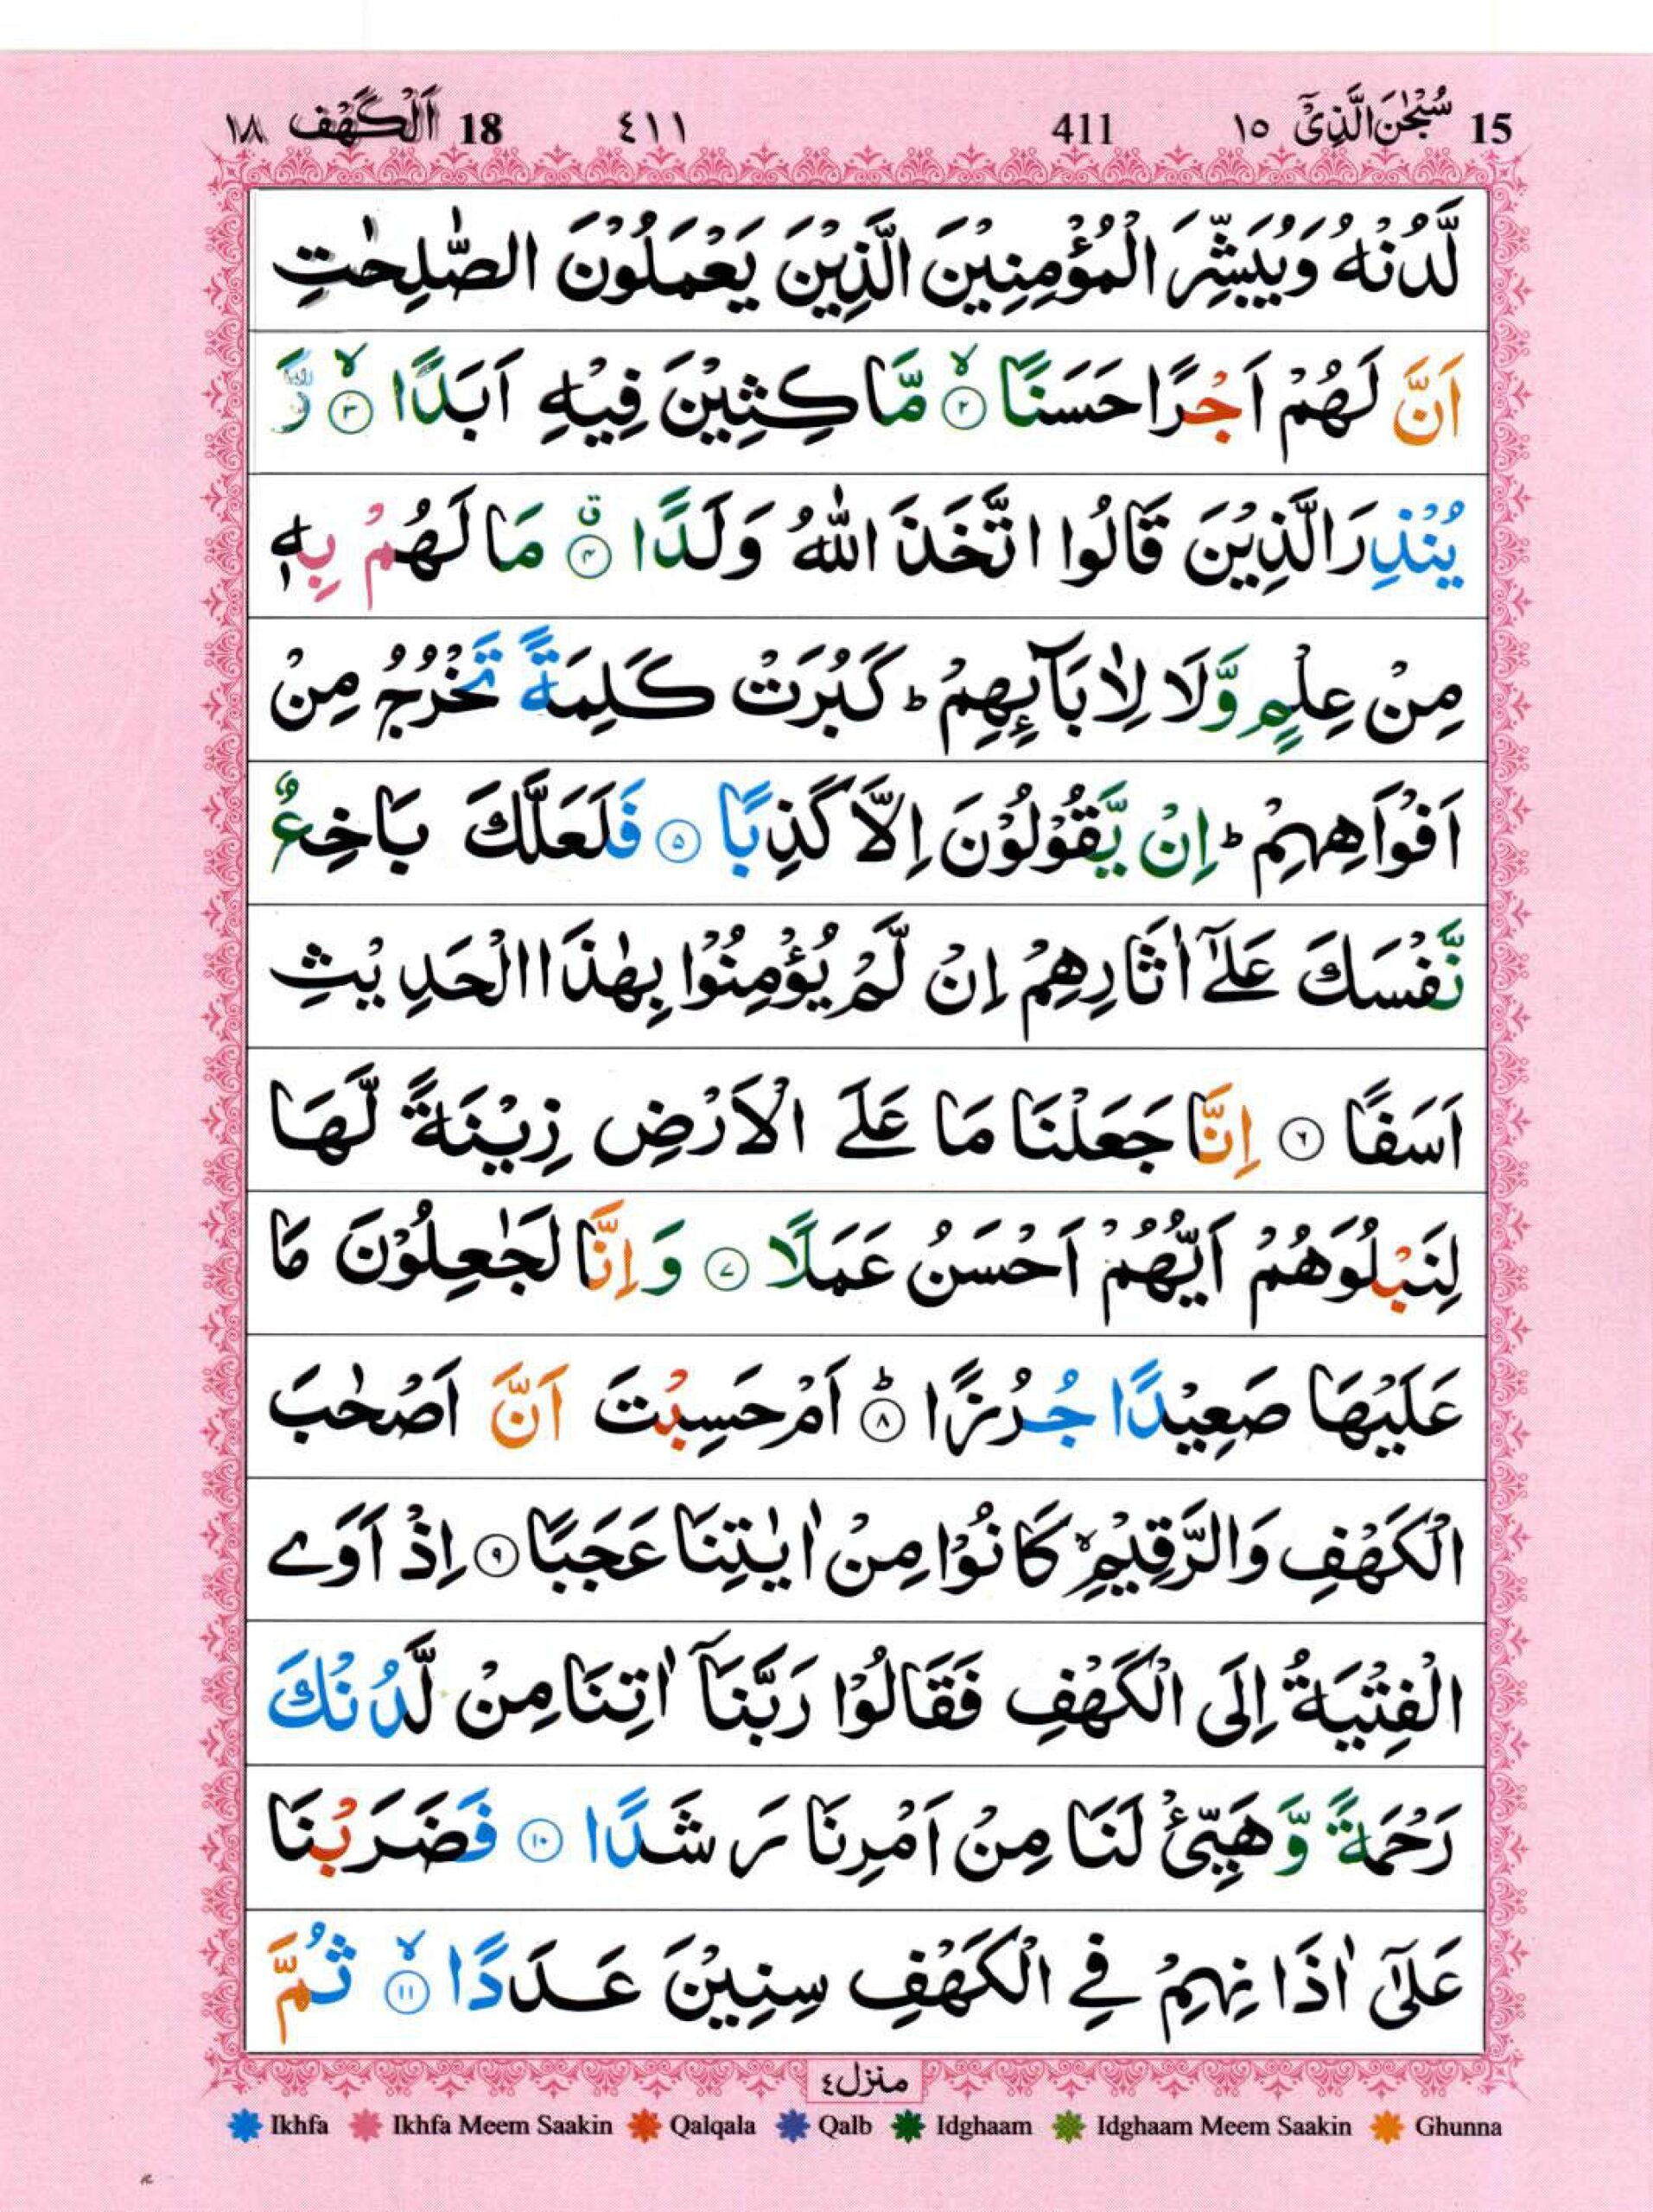 15 سُبْحٰنَ الَّذِیْۤ ١٥ 411 ٤١١ 18 اَلْكَهْف ١٨
لَّدُنْهُ وَیُبَشِّرَ الْمُؤْمِنِیْنَ الَّذِیْنَ یَعْمَلُوْنَ الصّٰلِحٰتِ
اَنَّ لَهُمْ اَجْرًا حَسَنًا ۙ۲ مَّاكِثِیْنَ فِیْهِ اَبَدًا ۙ۳ وَّ
یُنْذِرَ الَّذِیْنَ قَالُوا اتَّخَذَ اللّٰهُ وَلَدًا ۗ۴ مَا لَهُمْ بِهٖ
مِنْ عِلْمٍ وَّلَا لِاٰبَآىِٕهِمْ ؕ كَبُرَتْ كَلِمَةً تَخْرُجُ مِنْ
اَفْوَاهِهِمْ ؕ اِنْ یَّقُوْلُوْنَ اِلَّا كَذِبًا ۵ فَلَعَلَّكَ بَاخِعٌ
نَّفْسَكَ عَلٰۤی اٰثَارِهِمْ اِنْ لَّمْ یُؤْمِنُوْا بِهٰذَا الْحَدِیْثِ
اَسَفًا ۶ اِنَّا جَعَلْنَا مَا عَلَی الْاَرْضِ زِیْنَةً لَّهَا
لِنَبْلُوَهُمْ اَیُّهُمْ اَحْسَنُ عَمَلًا ۷ وَاِنَّا لَجٰعِلُوْنَ مَا
عَلَیْهَا صَعِیْدًا جُرُزًا ؕ۸ اَمْ حَسِبْتَ اَنَّ اَصْحٰبَ
الْكَهْفِ وَالرَّقِیْمِ ۙ كَانُوْا مِنْ اٰیٰتِنَا عَجَبًا ۹ اِذْ اَوَی
الْفِتْیَةُ اِلَی الْكَهْفِ فَقَالُوْا رَبَّنَاۤ اٰتِنَا مِنْ لَّدُنْكَ
رَحْمَةً وَّهَیِّئْ لَنَا مِنْ اَمْرِنَا رَشَدًا ۱۰ فَضَرَبْنَا
عَلٰۤی اٰذَانِهِمْ فِی الْكَهْفِ سِنِیْنَ عَدَدًا ۙ۱۱ ثُمَّ
منزل٤
Ikhfa Ikhfa Meem Saakin Qalqala Qalb Idghaam Idghaam Meem Saakin Ghunna